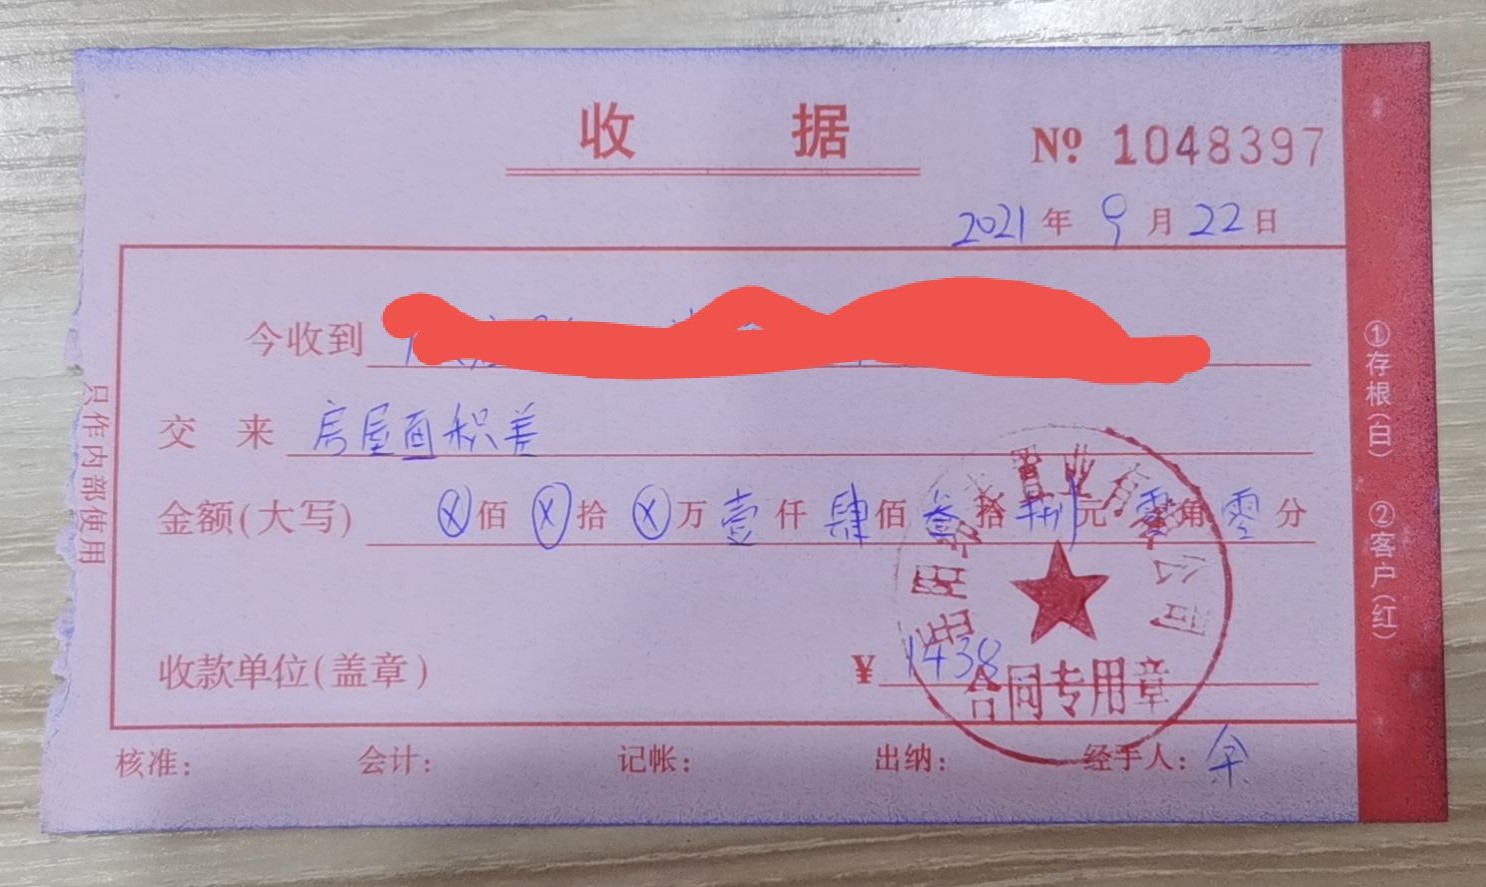 收 据
№ 1048397
2021 年 9 月 22 日
今收到
交 来 房屋面积差
金额(大写) ⓧ佰 ⓧ拾 ⓧ万 壹 仟 肆 佰 叁 拾 捌 元 零 角 零 分
收款单位(盖章) ¥ 1438
置业有 公司
合同专用章
核准: 会计: 记帐: 出纳: 经手人: 余
只作内部使用
①存根(白) ②客户(红)